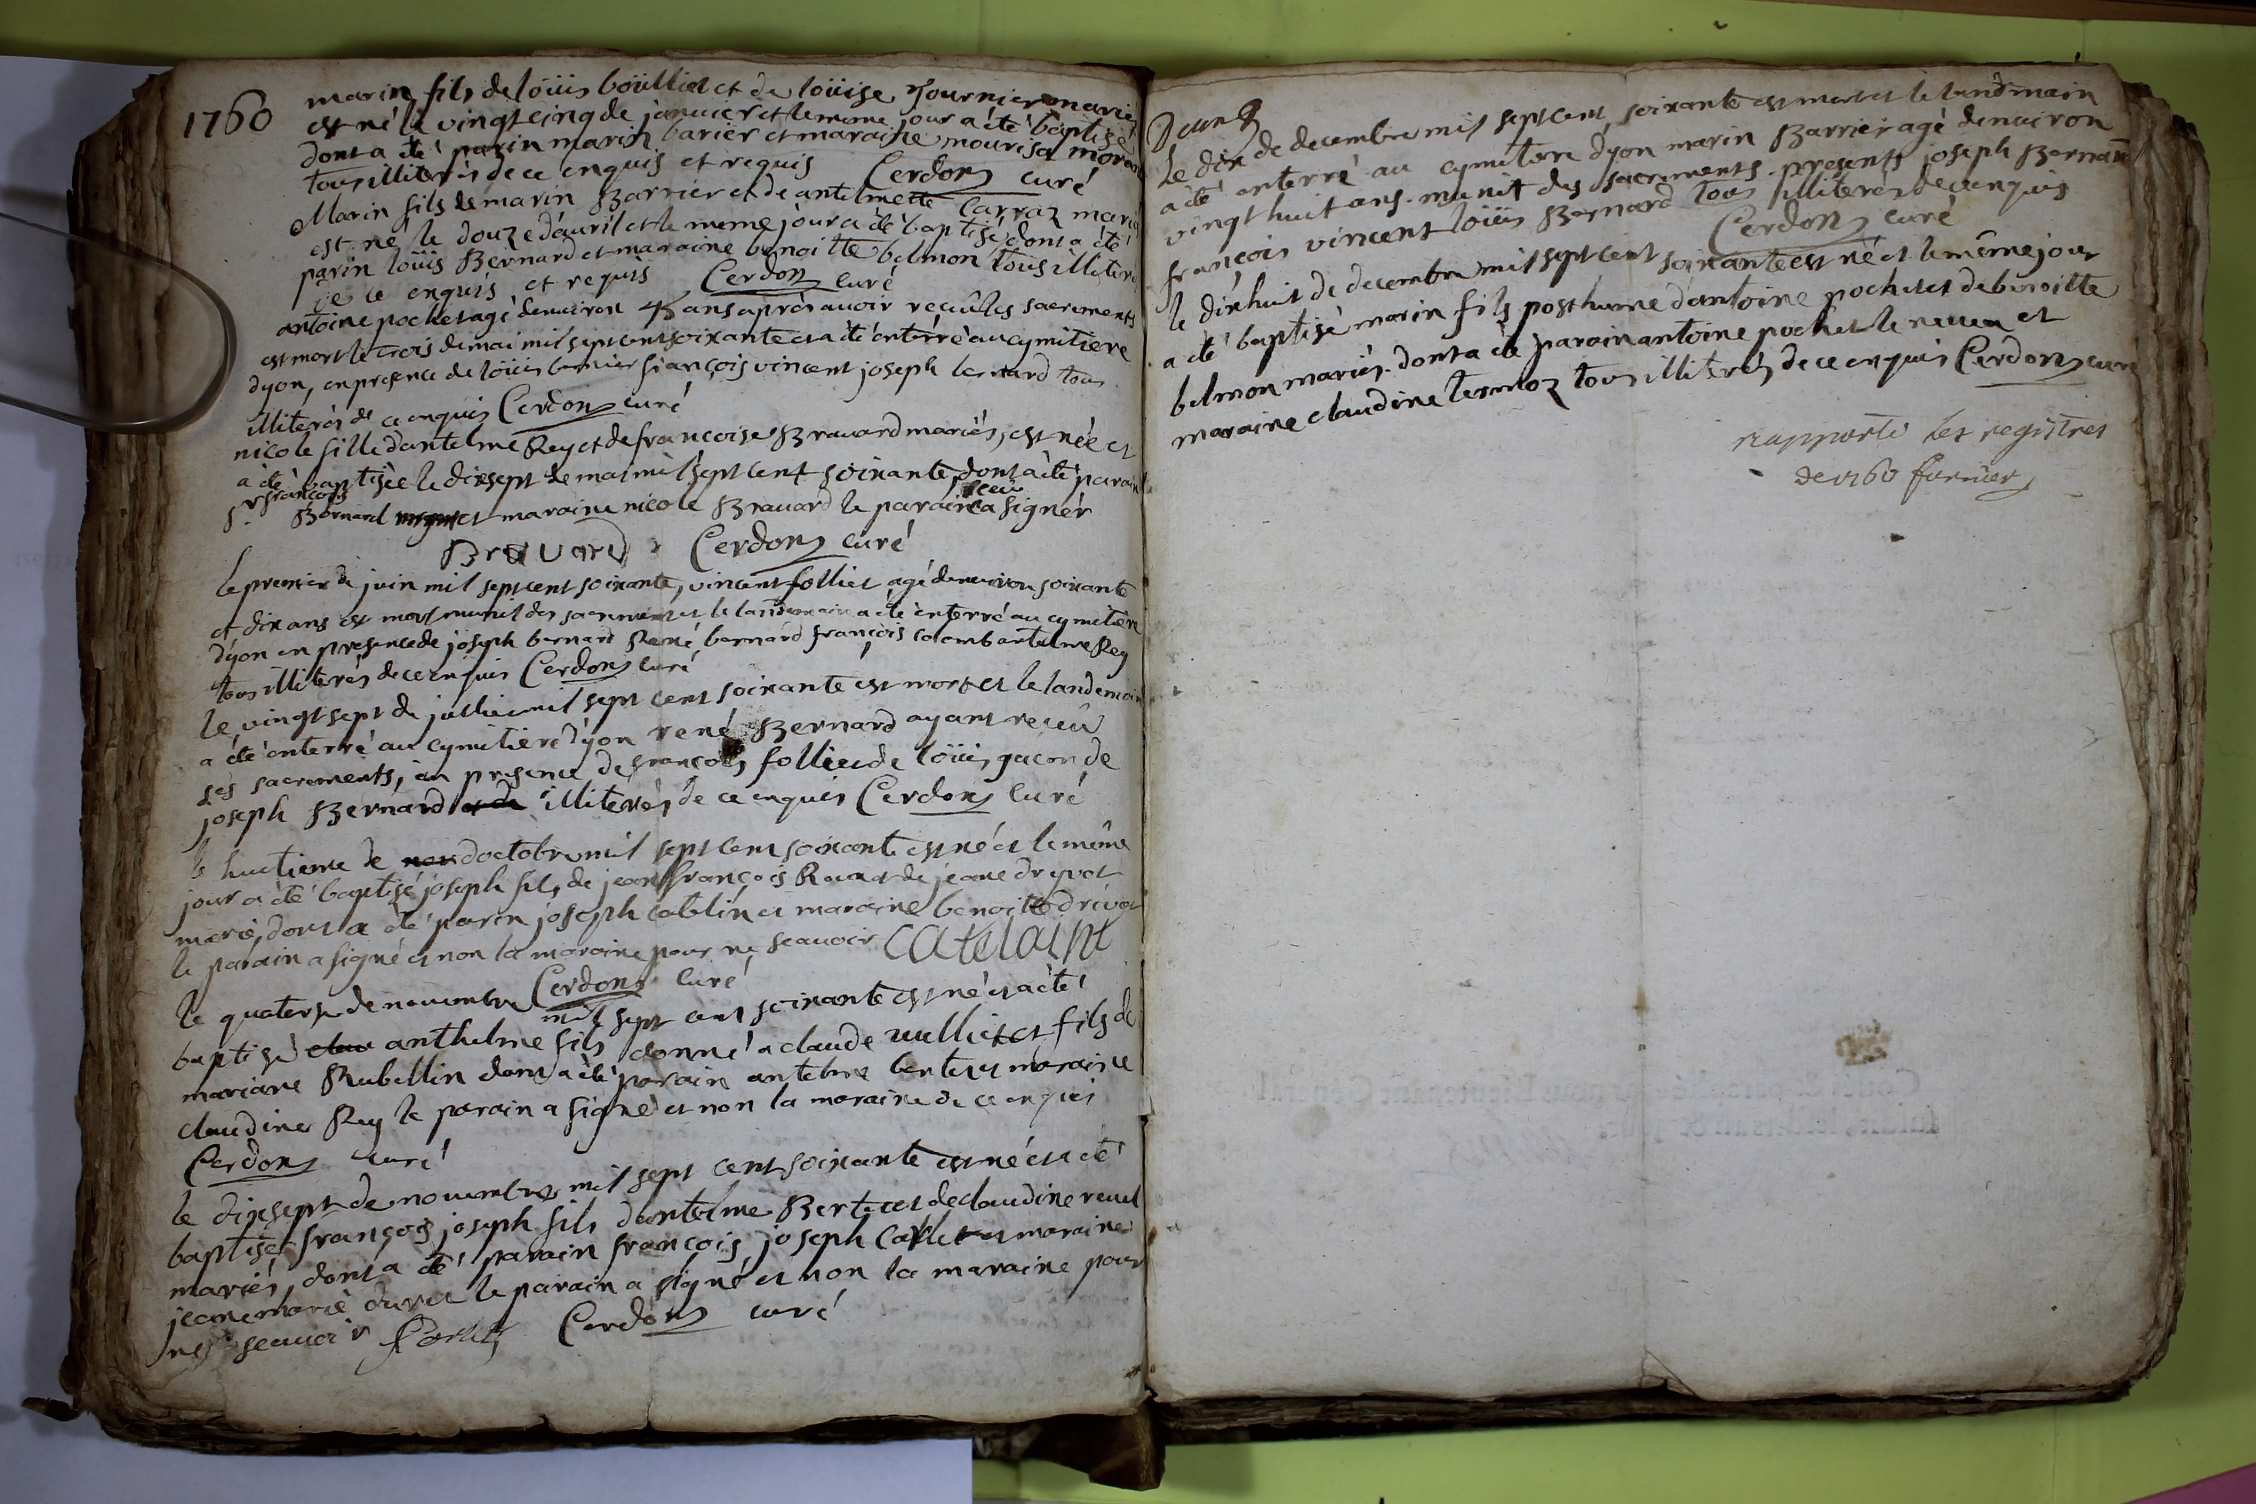 1760
marin fils de loüis boüilliet et de loüise fournier mariés
est né le vingt cinq de janvier et le meme jour a été baptisé
dont a été parin marin barier et maraine
tous illiterés de ce enquis et requis Cerdon curé
Marin fils de marin Barrier et de antelmette Carraz mariés
est né le douze d'auril et le meme jour a été baptisé dont a été
parin loüis Bernard et maraine benoitte belmon tous illiterés
de ce enquis et requis Cerdon curé
antoine pochet agé denuiron 45 ans aprés auoir reçû les sacrements
est mort le trois de mai mil sept cent soixante et a été enterré au cymitiere
dyon, en presence de loüis bernier françois vincent joseph bernard tous
illiterés de ce enquis Cerdon curé
nicole fille dantelme Rey et de françoise Brauard mariés, est née et
a été baptisée le dix sept de mai mil sept cent soixante, dont a été parain
sr françois Bernard et maraine nicole Brauard le parain a signér
Brauard Cerdon curé
le premier de juin mil sept cent soixante, vincent folliet agé denuiron soixante
et dix ans est mort munit des sacrements et le landemain a été enterré au cymitiere
dyon en presence de joseph bernard René bernard françois colomb antelme Rey
tous illiterés de ce enquis Cerdon curé
le vingt sept de julliet mil sept cent soixante est mort et le landemain
a été enterré au cymitiere dyon rené Bernard ayant reçeû
ses sacrements, en presence de françois folliet de loüis gacon de
joseph Bernard et de illiterés de ce enquis Cerdon curé
le huitieme de nov doctobre mil sept cent soixante est né et le même
jour a été baptisé joseph fils de jean françois Rou et de jeane driuot
mariés, dont a été parin joseph catelin et maraine benoitte driuot
le parain a signé et non la maraine pour ne scauoir catelaint
Cerdon curé
le quatorze de nouembre mil sept cent soixante est né et a été
baptisé clau anthelme fils donné a claude uulliet et fils de
mariane Rubellin dont a été parain antelme bertet et maraine
claudine Rey le parain a signé et non la maraine de ce enquis
Cerdon curé
le dix sept de nouembre mil sept cent soixante est né et a été
baptisé françois joseph fils dantelme Bertet et de claudine reuel
mariés, dont a été parain françois joseph Carlet et maraine
jeane marie duret le parain a signé et non la maraine pour
ne sçauoir Carlet Cerdon curé
Le dix de decembre mil sept cent soixante est mort et le landemain
a été enterré au cymitiere dyon marin Barrier agé denuiron
vingt huit ans. munit des sacrements. presents joseph Bernard
françois vincent loüis Bernard tous illiterés de ce enquis
Cerdon curé
le dix huit de decembre mil sept cent soixante est né et le même jour
a été baptisé marin fils posthume dantoine pochet et de benoitte
belmon mariés. dont a été parain antoine pochet le neueu et
maraine claudine termoz tous illiterés de ce enquis Cerdon curé
rapporté les registres
de 1760 furnier